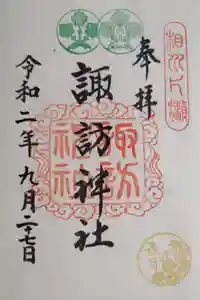 奉拝
諏訪神社
令和二年九月二十七日
諏訪神社